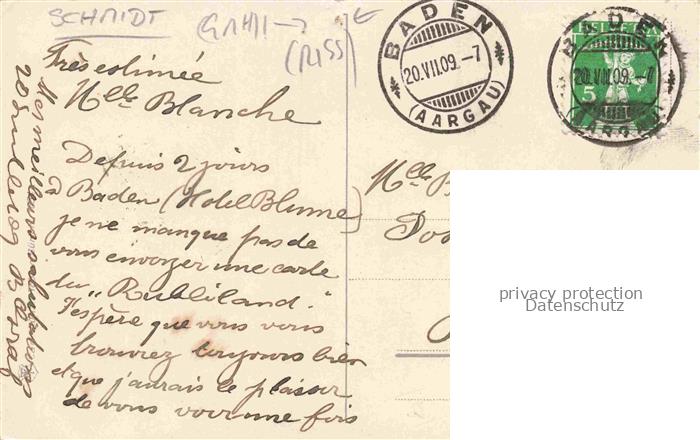 SCHMIDT
(RISS)
BADEN
20.VII.09.–7
(AARGAU)
BADEN
20.VII.09.–7
5
Très estimée
Mlle Blanche
Depuis 2 jours
à Baden (Hotel Blume)
je ne manque pas de
vous envoyer une carte
du „Rubliland."
J'espère que vous vous
trouvez toujours bien
et que j'aurais le plaisir
de vous voir une fois
Mes meilleures salutations
Mlle
privacy protection
Datenschutz